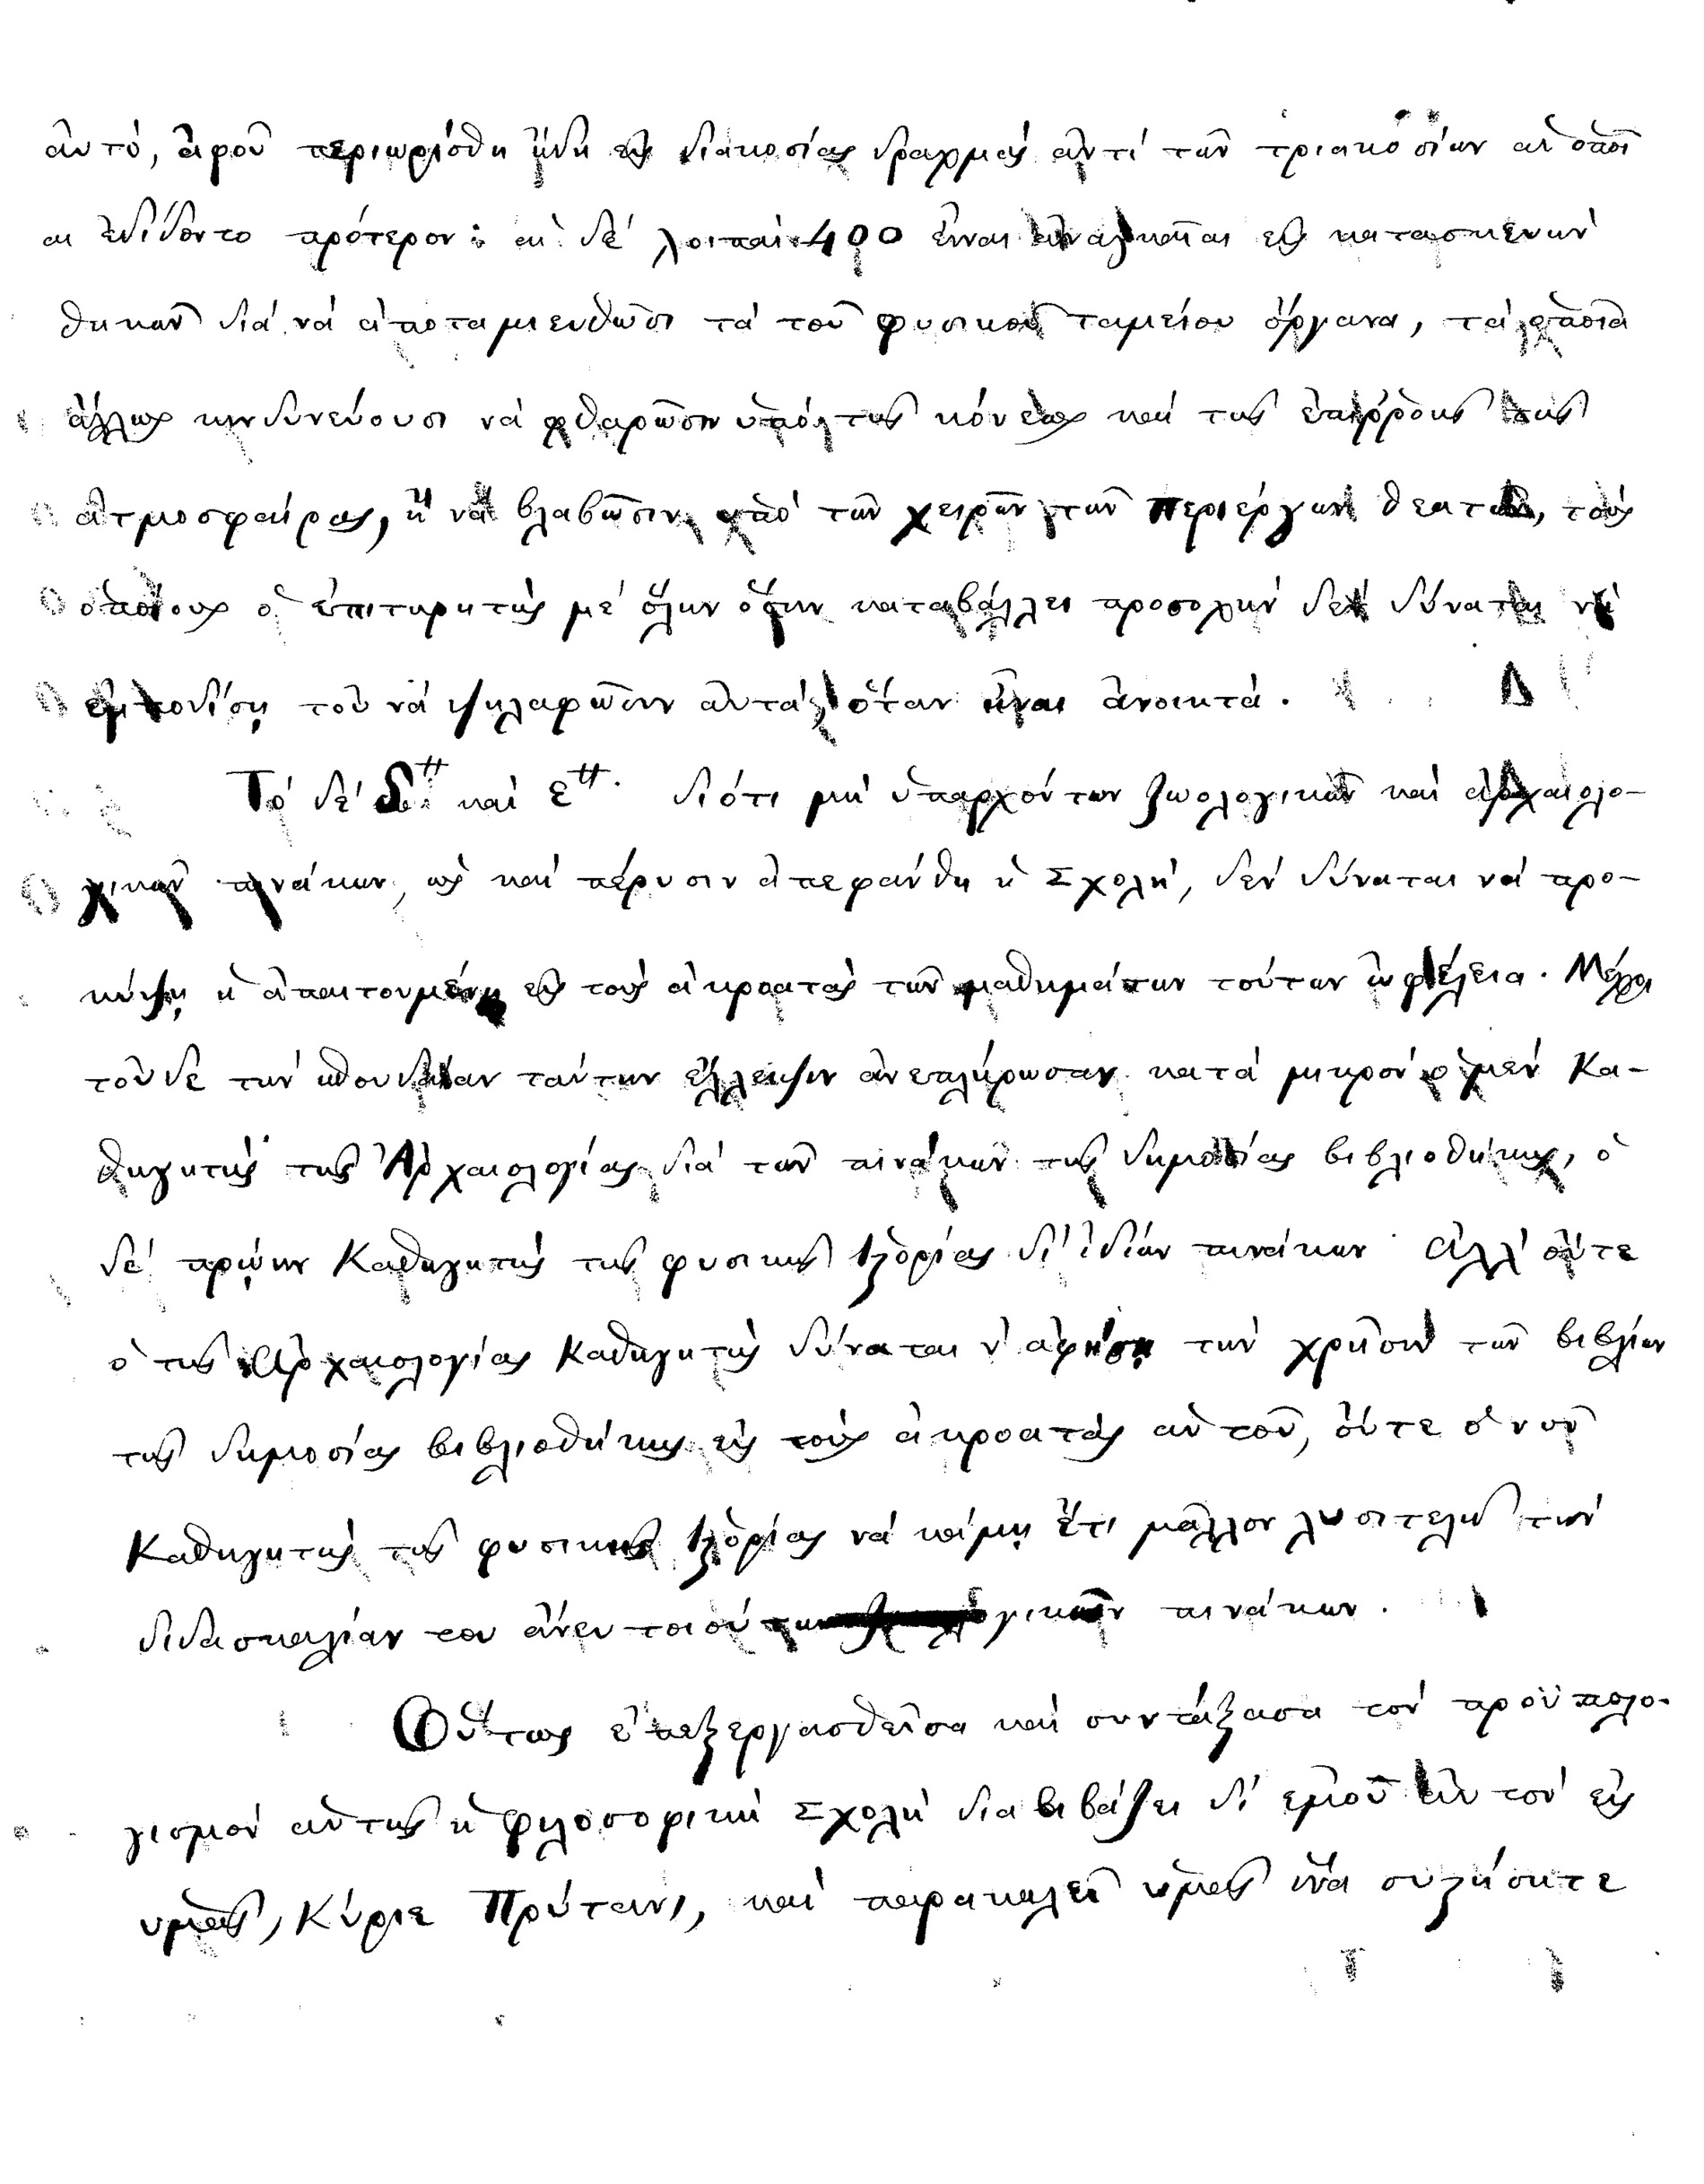 αὐτό, ἀφοῦ περιωρίσθη ἤδη εἰς διακοσίας δραχμάς ἀντί τῶν τριακοσίων αἱ ὁποῖ
αι ἐδίδοντο πρότερον· αἱ δέ λοιπαί 400 εἶναι ἀναγκαῖαι εἰς κατασκευήν
θηκῶν διά νά ἀποταμιευθῶσι τά τοῦ φυσικοῦ ταμείου ὄργανα, τά ὁποῖα
ἄλλως κινδυνεύουσι νά φθαρῶσιν ὑπό τῆς κόνεως καί τῆς ἐπιρροῆς τῆς
ἀτμοσφαίρας, ἤ νά βλαβῶσιν ἀπό τῶν χειρῶν τῶν περιέργων θεατῶν, τούς
ὁποίους ὁ ἐπιτηρητής μέ ὅλην ὅσην καταβάλλει προσοχήν δέν δύναται νά
ἐμποδίσῃ τοῦ νά ψηλαφῶσιν αὐτά, ὅταν εἶναι ἀνοικτά.
Τό δέ δ.ον καί ε.ον διότι μή ὑπαρχόντων ζωολογικῶν καί ἀρχαιολο-
γικῶν πινάκων, ὡς καί πέρυσιν ἀπεφάνθη ἡ Σχολή, δέν δύναται νά προ-
κύψῃ ἡ ἀπαιτουμένη εἰς τούς ἀκροατάς τῶν μαθημάτων τούτων ὠφέλεια. Μέχρι
τοῦδε τήν σπουδαίαν ταύτην ἔλλειψιν ἀνεπλήρωσαν κατά μικρόν ὁ μέν Κα-
θηγητής τῆς Ἀρχαιολογίας διά τῶν πινάκων τῆς δημοσίας βιβλιοθήκης, ὁ
δέ πρώην Καθηγητής τῆς φυσικῆς Ἱστορίας δι' ἰδίων πινάκων· Ἀλλ' οὔτε
ὁ τῆς Ἀρχαιολογίας Καθηγητής δύναται ν' ἀφήσῃ τήν χρῆσιν τῶν βιβλίων
τῆς δημοσίας βιβλιοθήκης εἰς τούς ἀκροατάς αὐτοῦ, οὔτε ὁ νῦν
Καθηγητής τῆς φυσικῆς Ἱστορίας νά κάμῃ ἔτι μᾶλλον λυσιτελῆ τήν
διδασκαλίαν του ἄνευ τοιούτων πινάκων.
Οὕτως ἐπεξεργασθεῖσα καί συντάξασα τόν προϋπολο-
γισμόν αὐτῆς ἡ φιλοσοφική Σχολή διαβιβάζει δι' ἐμοῦ αὐτόν εἰς
ὑμᾶς, Κύριε Πρύτανι, καί παρακαλεῖ ὑμᾶς ἵνα συζήσητε